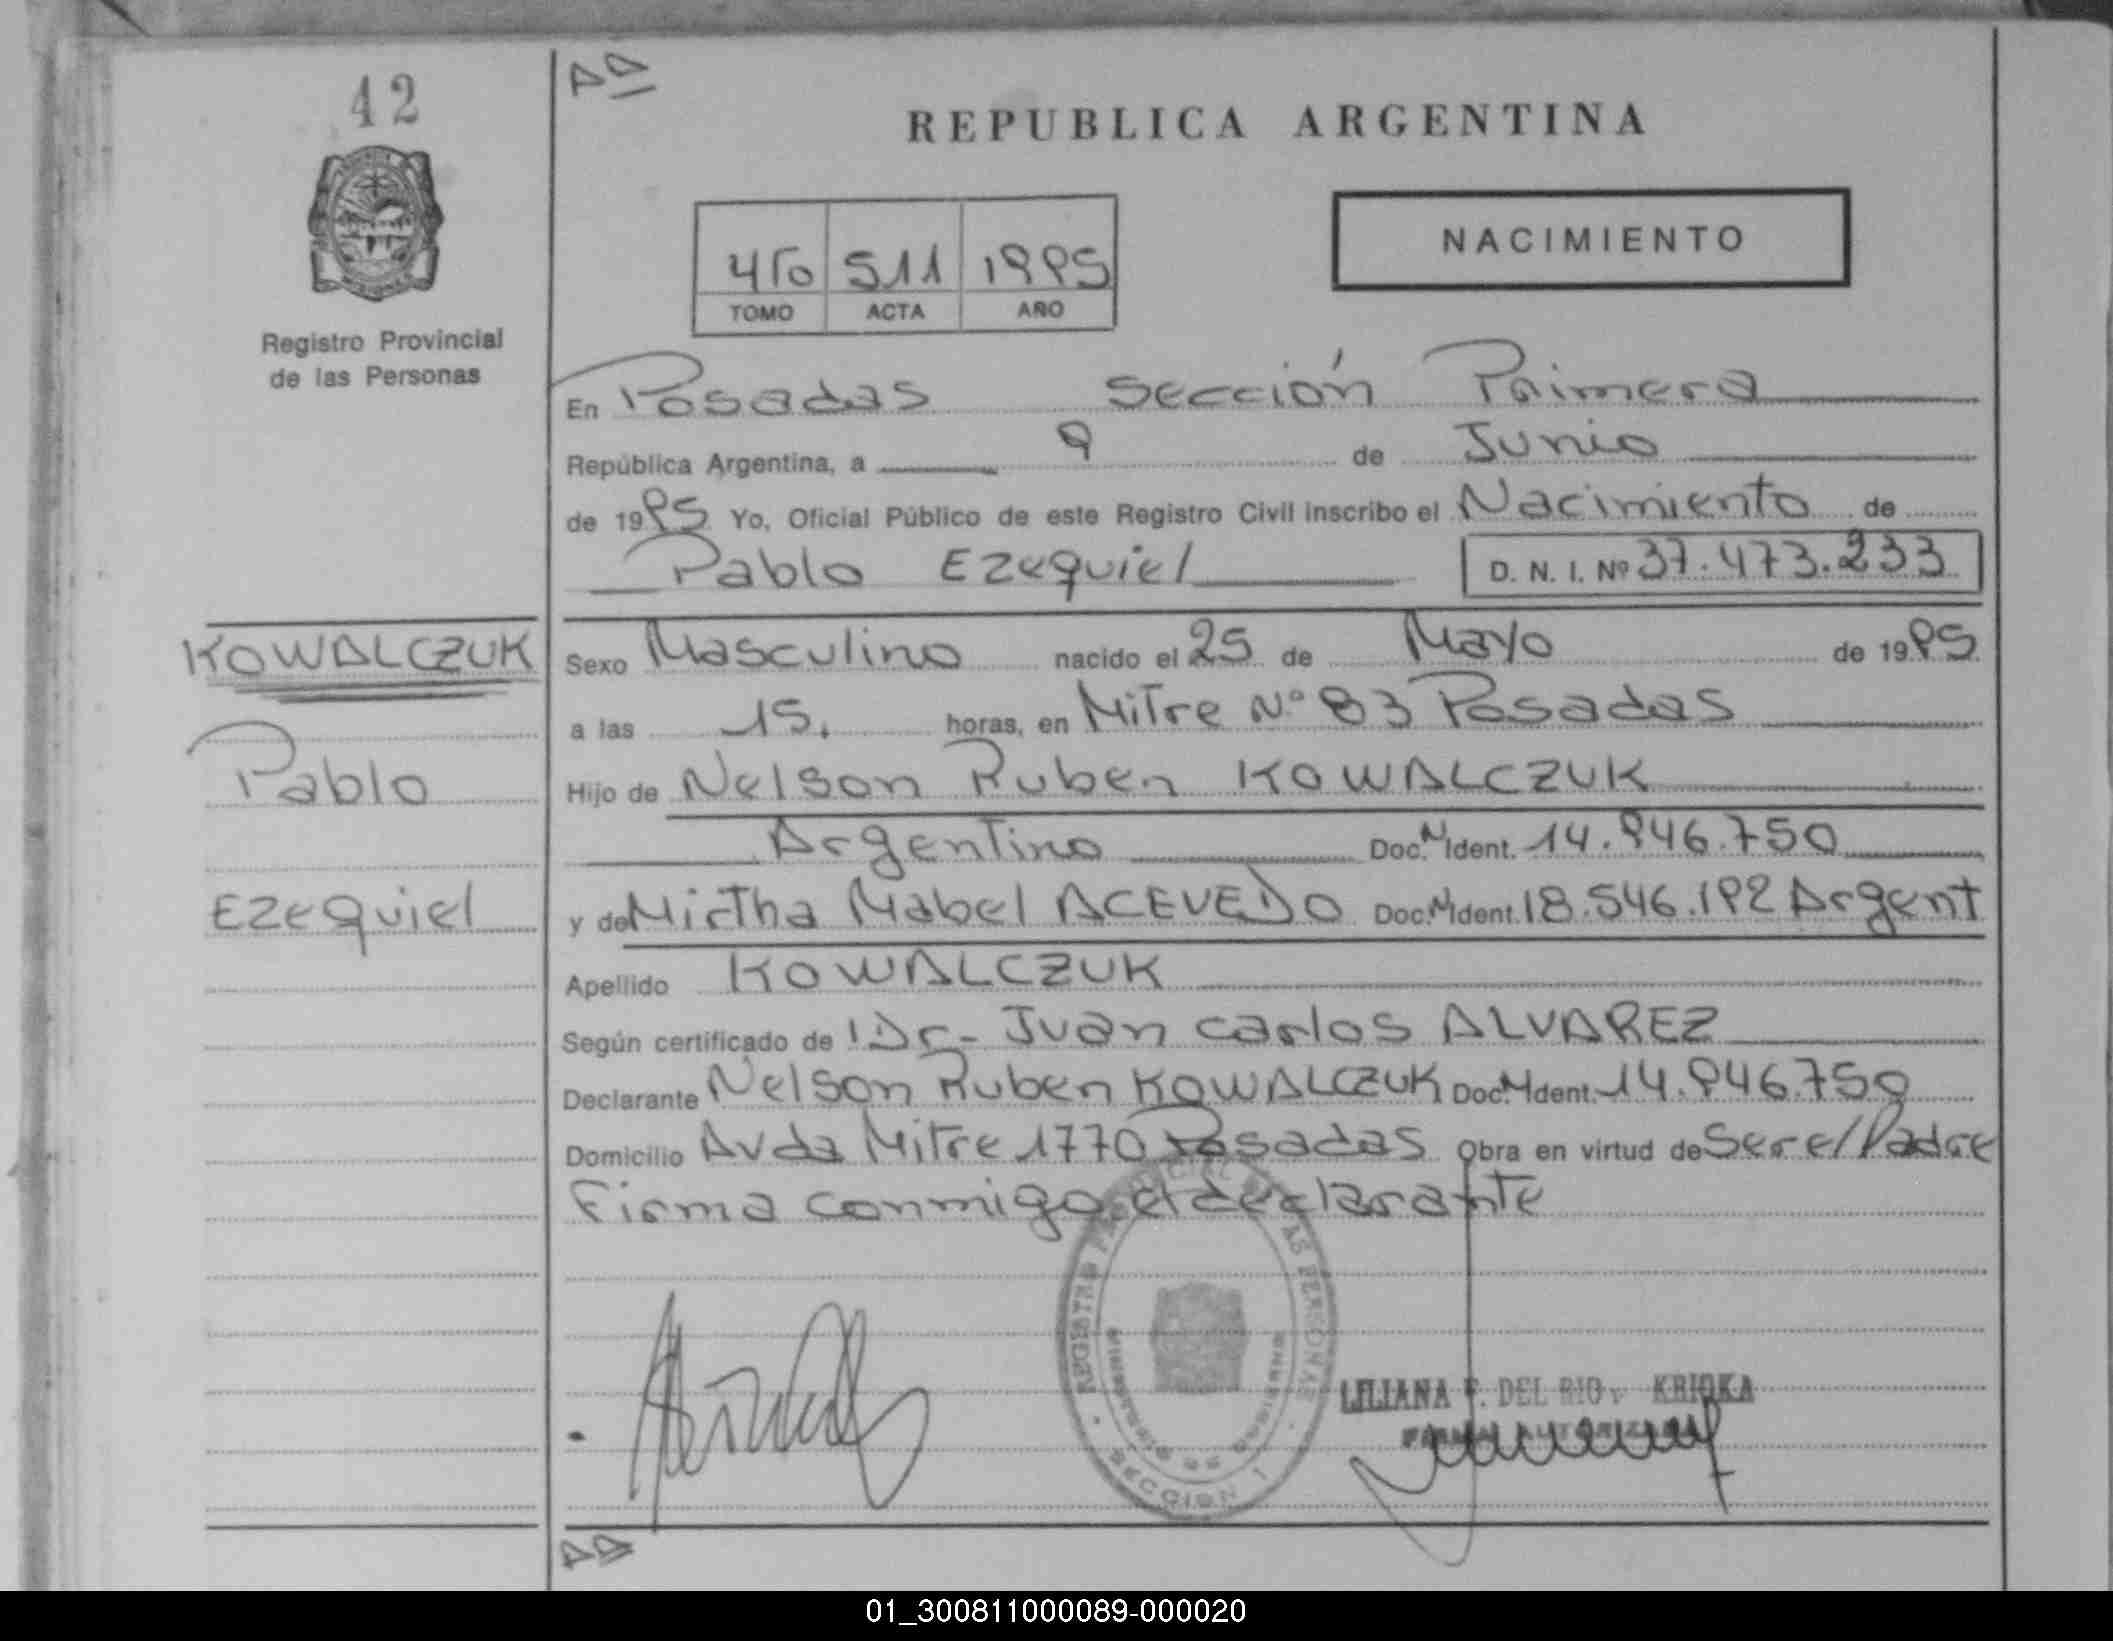 42
REPUBLICA ARGENTINA
4to 511 1995
TOMO ACTA AÑO
NACIMIENTO
Registro Provincial
de las Personas
En Posadas Sección Primera
República Argentina, a 9 de Junio
de 1995 Yo, Oficial Público de este Registro Civil inscribo el Nacimiento de
Pablo Ezequiel D. N. I. Nº 37.473.233
KOWALCZUK
Pablo
Ezequiel
Sexo Masculino nacido el 25 de Mayo de 1995
a las 15. horas, en Mitre Nº 83 Posadas
Hijo de Nelson Ruben KOWALCZUK
Argentino Doc. N Ident. 14.946.750
y de Mirtha Mabel ACEVEDO Doc. N Ident. 18.546.192 Argent
Apellido KOWALCZUK
Según certificado de Dr. Juan Carlos ALVAREZ
Declarante Nelson Ruben KOWALCZUK Doc. N Ident. 14.946.750
Domicilio Avda Mitre 1770 Posadas Obra en virtud de Ser el Padre
Firma conmigo el declarante
REGISTRO PROVINCIAL DE LAS PERSONAS
SECCION 1
LILIANA F. DEL RIO
FIRMA AUTORIZADA
01_300811000089-000020